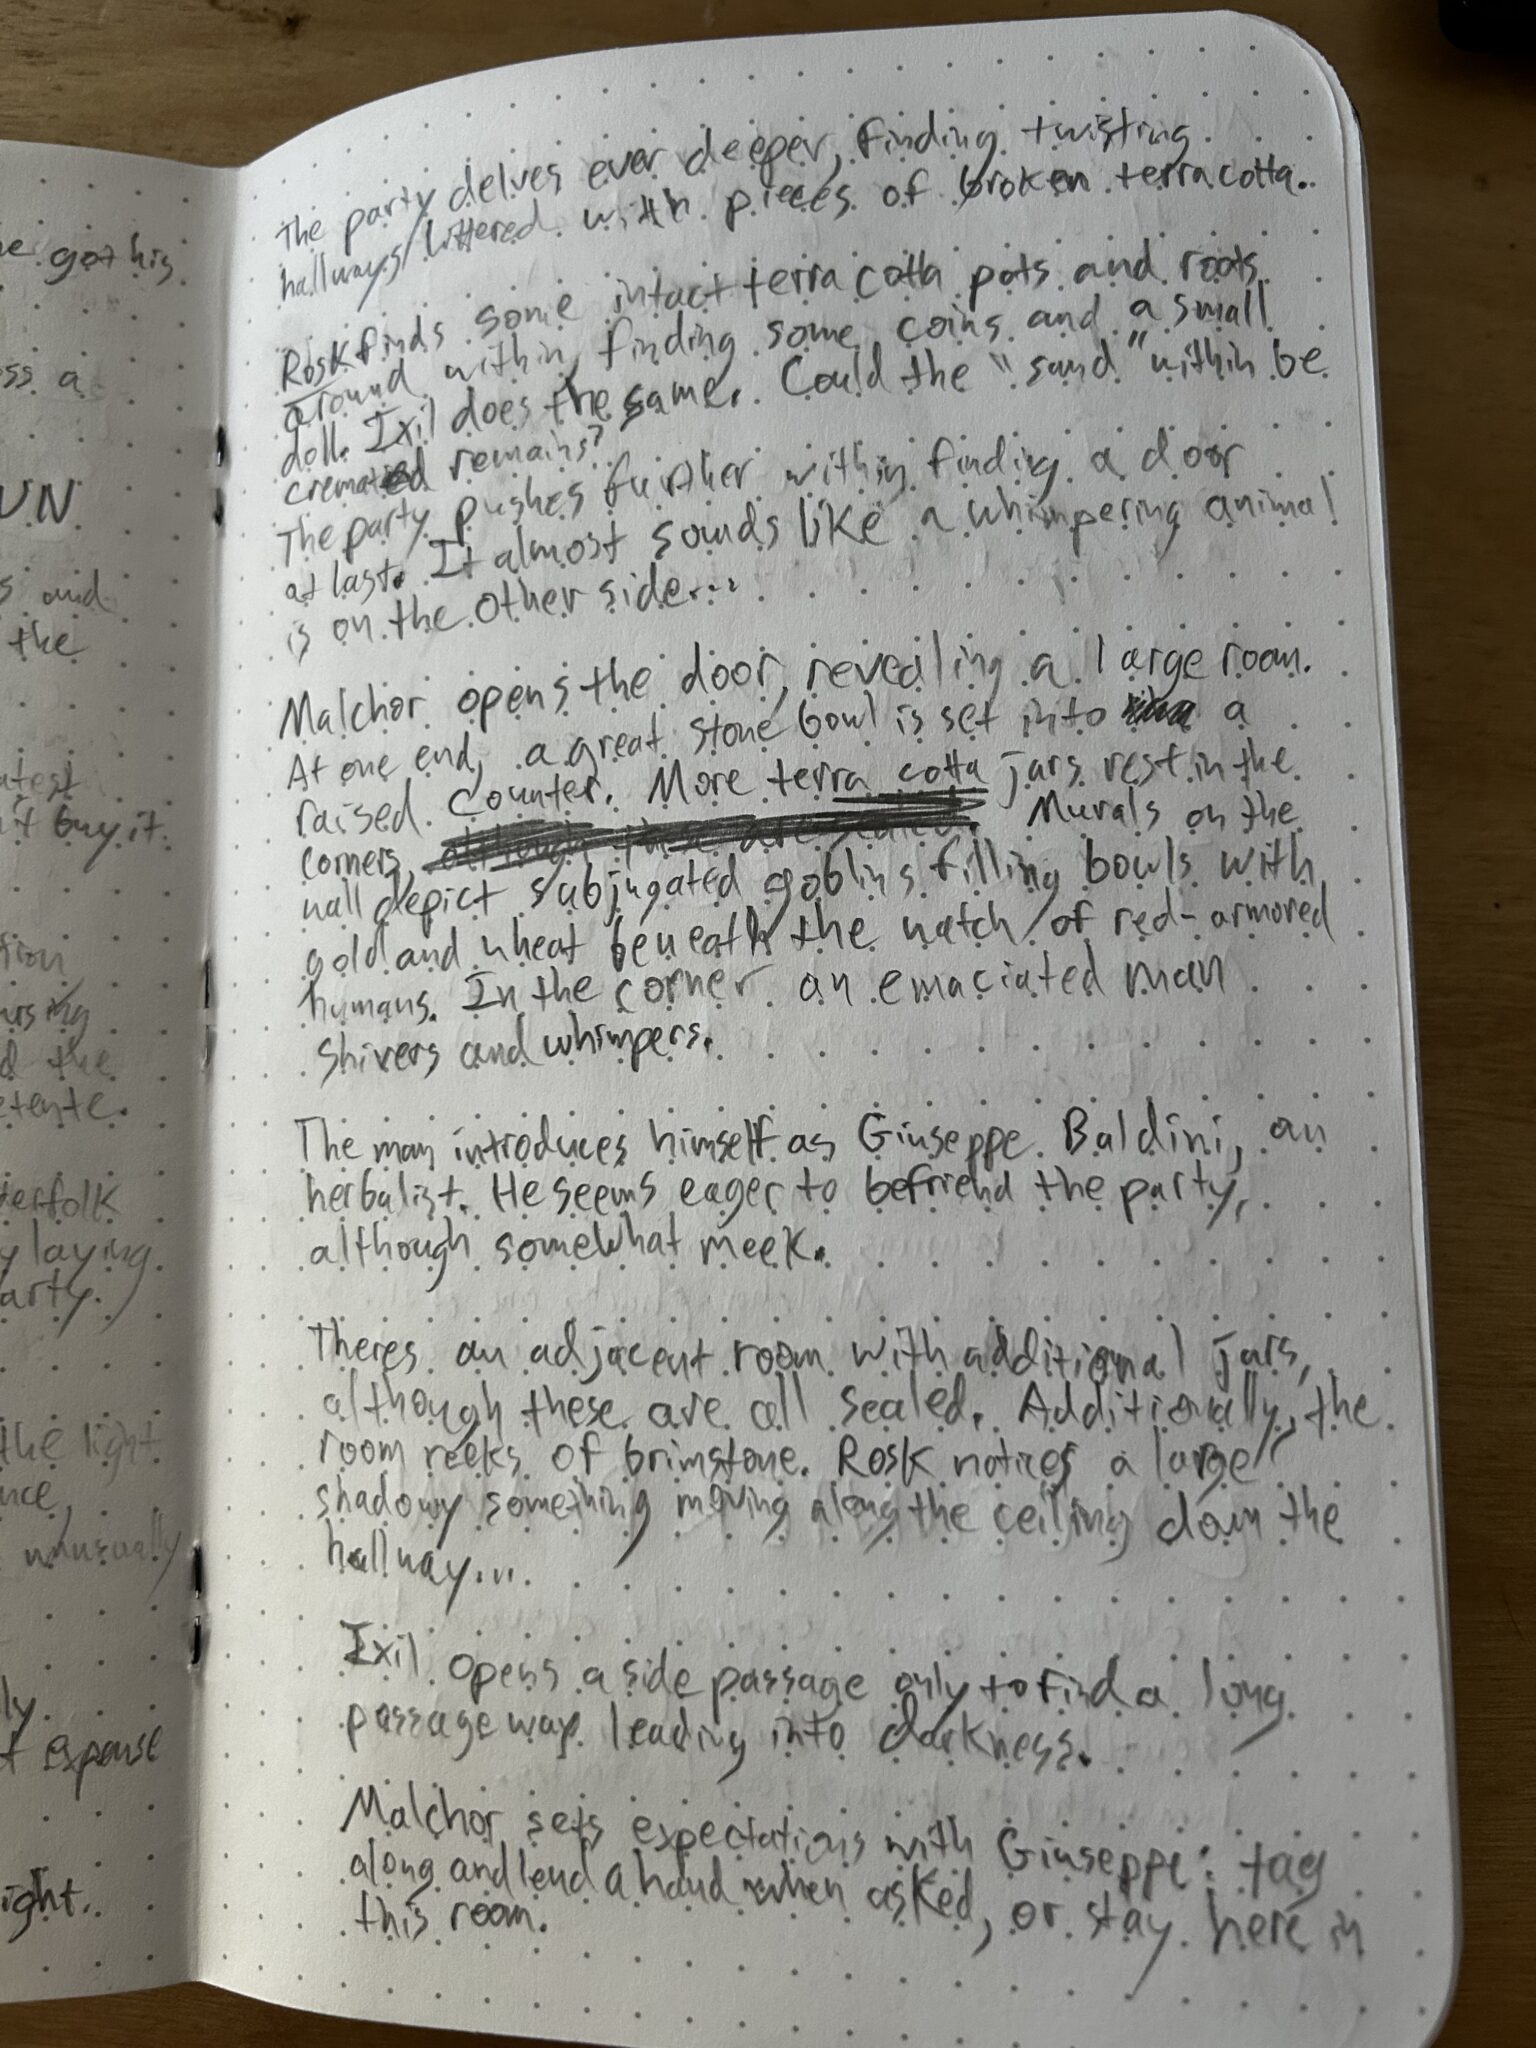 e got his
ss a
UN
s and
the
atest
't buy it.
tion
ursing
d the
etente.
erfolk
y laying
arty.
the light
nce,
unusually
ly
t expense
ight.
The party delves ever deeper, finding twisting
hallways littered with pieces of broken terracotta.
Rosk finds some intact terra cotta pots and roots
around within, finding some coins and a small
doll. Ixil does the same. Could the "sand" within be
cremated remains?
The party pushes further within finding a door
at last. It almost sounds like a whimpering animal
is on the other side...
Malchor opens the door, revealing a large room.
At one end, a great stone bowl is set into a
raised counter. More terra cotta jars rest in the
corners, although these are sealed. Murals on the
wall depict subjugated goblins filling bowls with
gold and wheat beneath the watch of red-armored
humans. In the corner an emaciated man
shivers and whimpers.
The man introduces himself as Giuseppe Baldini, an
herbalist. He seems eager to befriend the party,
although somewhat meek.
Theres an adjacent room with additional jars,
although these are all sealed. Additionally, the
room reeks of brimstone. Rosk notices a large
shadowy something moving along the ceiling down the
hallway...
Ixil opens a side passage only to find a long
passageway leading into darkness.
Malchor sets expectations with Giuseppe: tag
along and lend a hand when asked, or stay here in
this room.